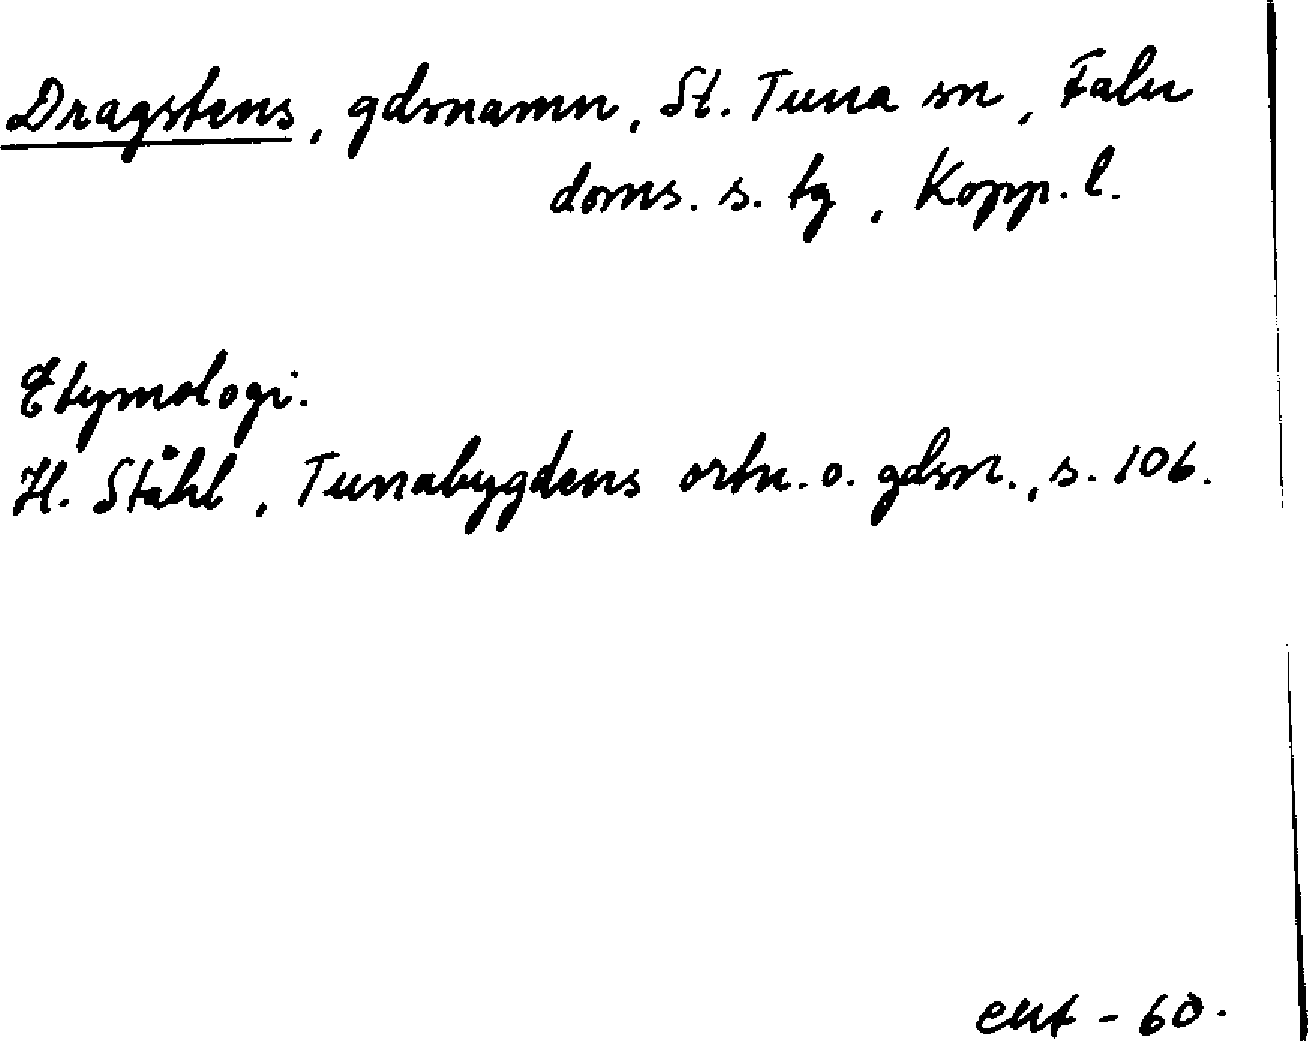 Dragstens, gdsnamn, St. Tuna sn, Falu
doms. s. tg, Kopp. l.
Etymologi.
H. Ståhl, Tunabygdens ortn. o. gdsn., s. 106.
- 60.